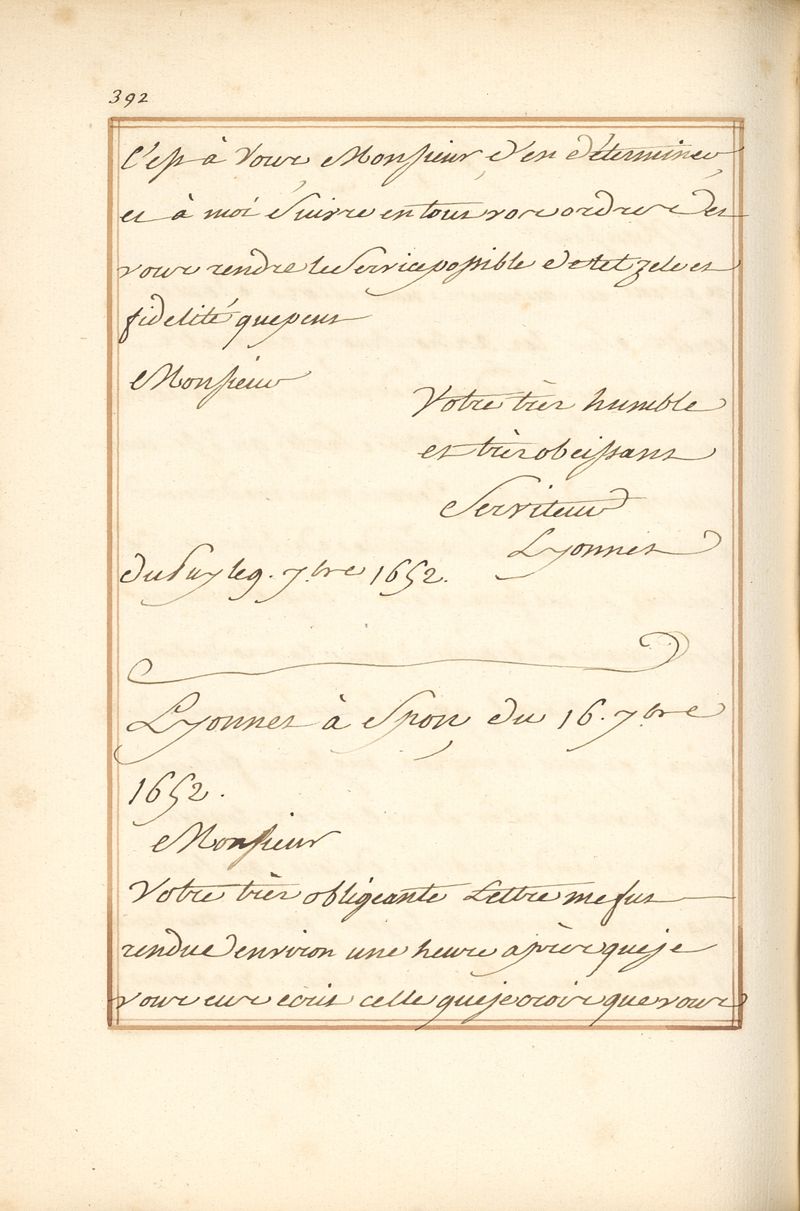 392
C'est à Vous Monsieur, d'en déterminer,
et à moi Suivre en tous vos ordres et
vous rendre le Service possible de tel zele et
fidelité que peut
Monsieur
Votre très humble
et très obeissant
Serviteur
Lyonnet
du Puy le 9. 7.bre 1652.
Lyonnet à Spon, du 16. 7bre
1652.
Monsieur
Votre très obligeante Lettre me fut
rendue environ une heure après que je
vous eus écrit celle que je crois que vous